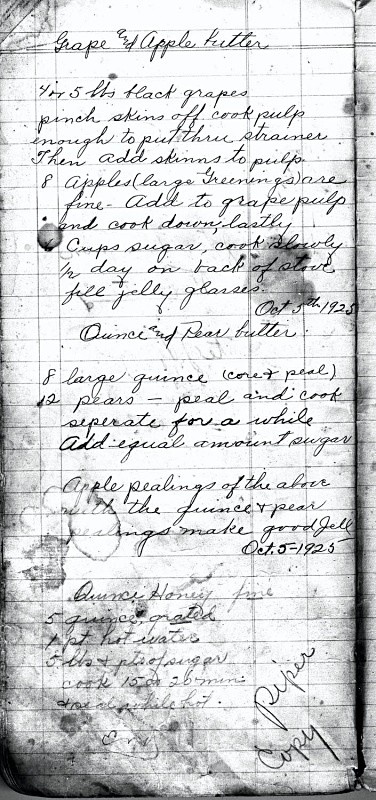 Grape and Apple butter
4 or 5 lbs black grapes
pinch skins off cook pulp
enough to put thru strainer
Then add skinns to pulp.
8 Apples (large Greenings) are
fine - Add to grape pulp
and cook down, lastly
Cups sugar, cook slowly
1/2 day on back of stove
fill jelly glasses.
Oct 5th 1925
Quince and Pear butter.
8 large quince (core & peal)
12 pears - peal and cook
seperate for a while
Add equal amount sugar
Apple pealings of the above
with the quince & pear
pealings make good Jell
Oct. 5 - 1925
Quince Honey fine
5 quince, grated
1 pt hot water
5 lbs & pts of sugar
cook 15 or 20 min
& seal while hot.
Piper
Copy